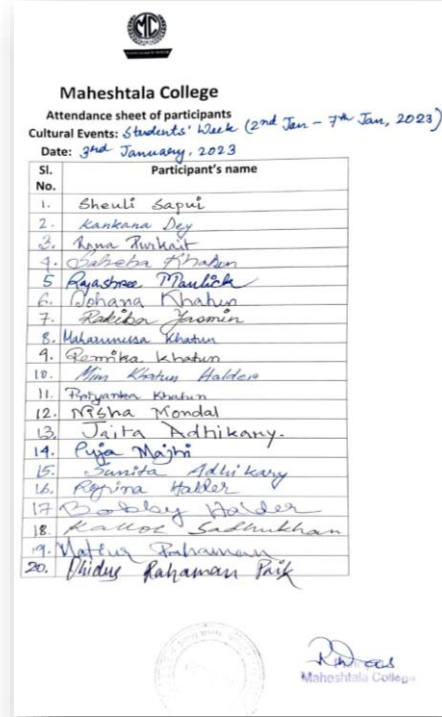 MC
Maheshtala College
Attendance sheet of participants
Cultural Events: Students' Week (2nd Jan - 7th Jan, 2023)
Date: 3rd January, 2023
Sl. No. Participant's name
1. Sheuli Sapui
2. Kankana Dey
3. Purkait
4. Saheba Khatun
5 Rajashree Maulick
6. Sohana Khatun
7. Rakiba Yasmin
8. Khatun
9. Remika Khatun
10. Mim Khatun Halder
11. Priyanka Khatun
12. Nisha Mondal
13. Jaita Adhikary.
14. Puja Majhi
15. Sunita Adhikary
16. Rojina Halder
17 Bobby Halder
18. Kallol Sadhukhan
19. Rahaman
20. Rahaman Paik
Maheshtala College